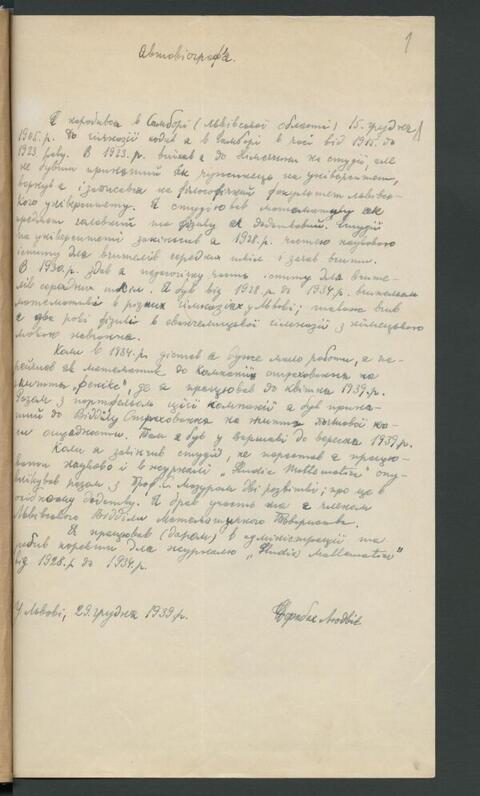 1
Автобіографія.
Я народився в Самборі (Львівської області) 15. грудня
1905. р. До гімназії ходив я в Самборі в часі від 1915. до
1923. року. В 1923. р. виїхав я до Німеччини на студії, але
не бувши принятий як чужинець на університет,
вернув і записався на філософічний факультет львівсь-
кого університету. Я студіював математику як
предмет головний та фізику як додатковий. Студії
на університеті закінчив я 1928. р. частею наукового
іспиту для вчителів середних шкіл і зачав вчити.
В 1930. р. здав я педагогічну часть іспиту для вчите-
лів середних шкіл. Я був від 1928. р. до 1934. р. вчителем
математики в різних гімназіях у Львові; також вчив
я два роки фізики в евангелицькій гімназії з німецькою
мовою навчання.
Коли в 1934. р. дістав я дуже мало роботи, я пе-
рейшов як математик до Компанії страхування на
життя „Фенікс", де я працював до квітня 1939. р.
Разом з портфельом цієї компанії я був приня-
тий до Відділу Страхування на життя поштової ка-
си ощадности. Там я був у Варшаві до вересня 1939 р.
Коли я закінчив студії, не перестав я працю-
вати науково і в журналі „Studia Mathematica" опу-
блікував разом з Проф. С. Мазуром дві розвідки; про це в
окремому додатку. Я брав участь як член
Львівського Відділу Математичного Товариства.
Я працював (даром) в адміністрації та
робив коректи для журналу „Studia Mathematica"
від 1928. р. до 1934. р.
У Львові, 29. грудня 1939. р.
Людвік